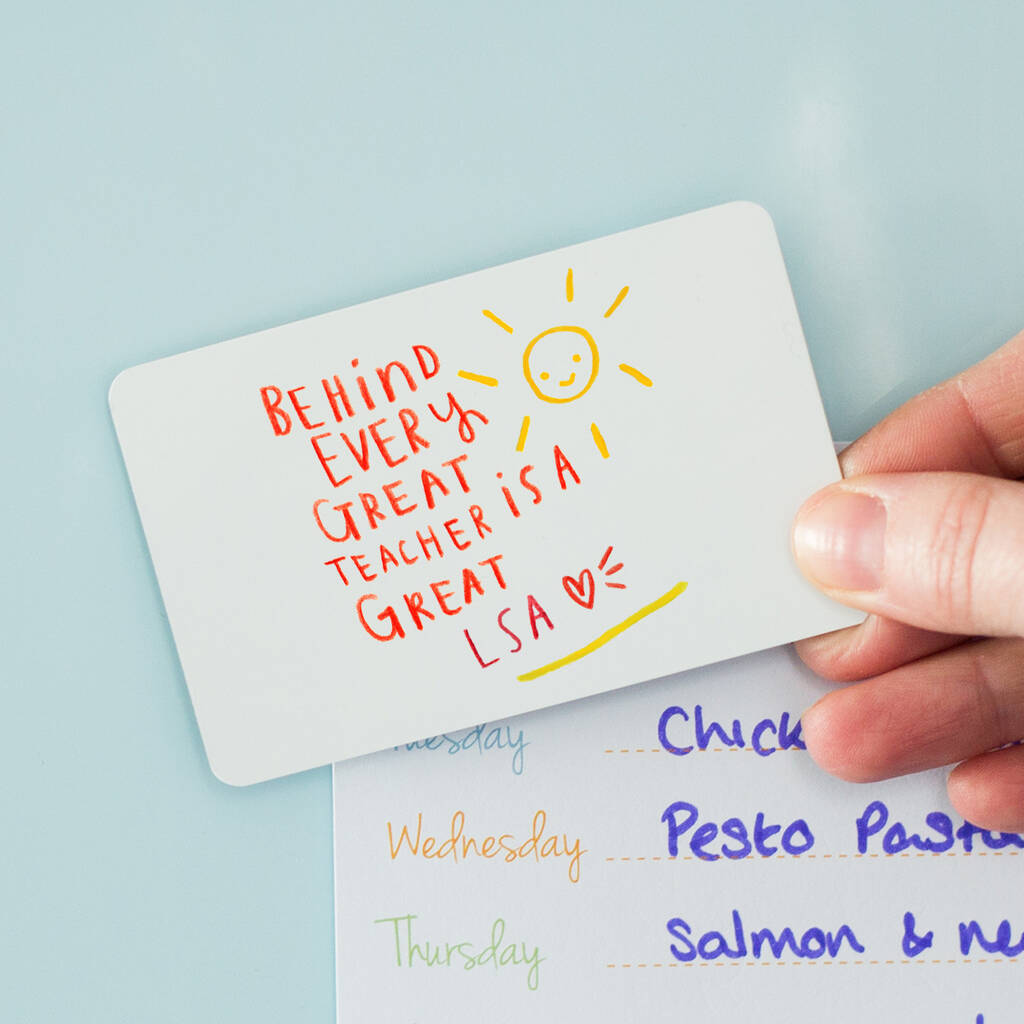 BEHIND
EVERY
GREAT
TEACHER IS A
GREAT
LSA
Tuesday
Wednesday Pesto Pasta
Thursday Salmon &